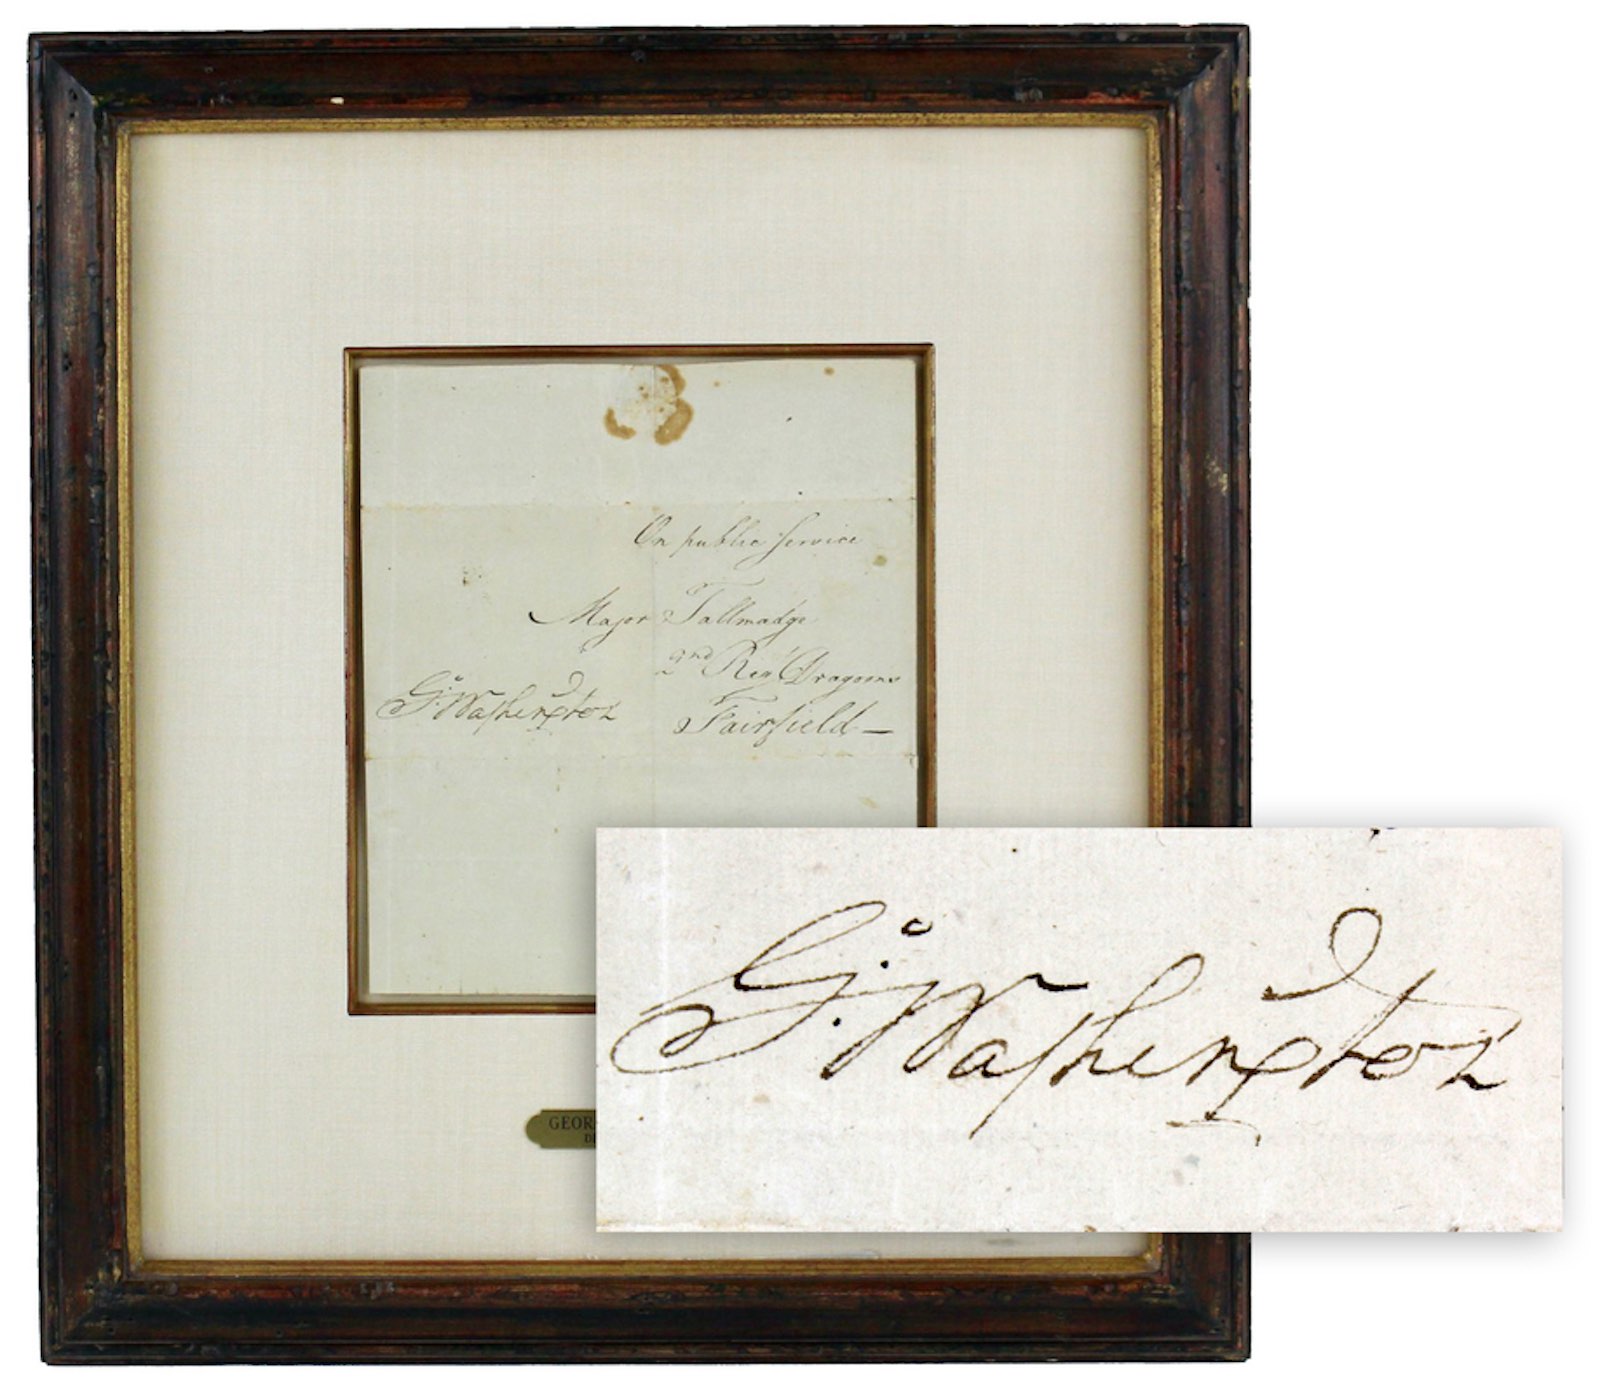 On public Service
Major Tallmadge
2nd Reg Dragoons
Fairfield —
Go: Washington
GEOR
Go: Washington